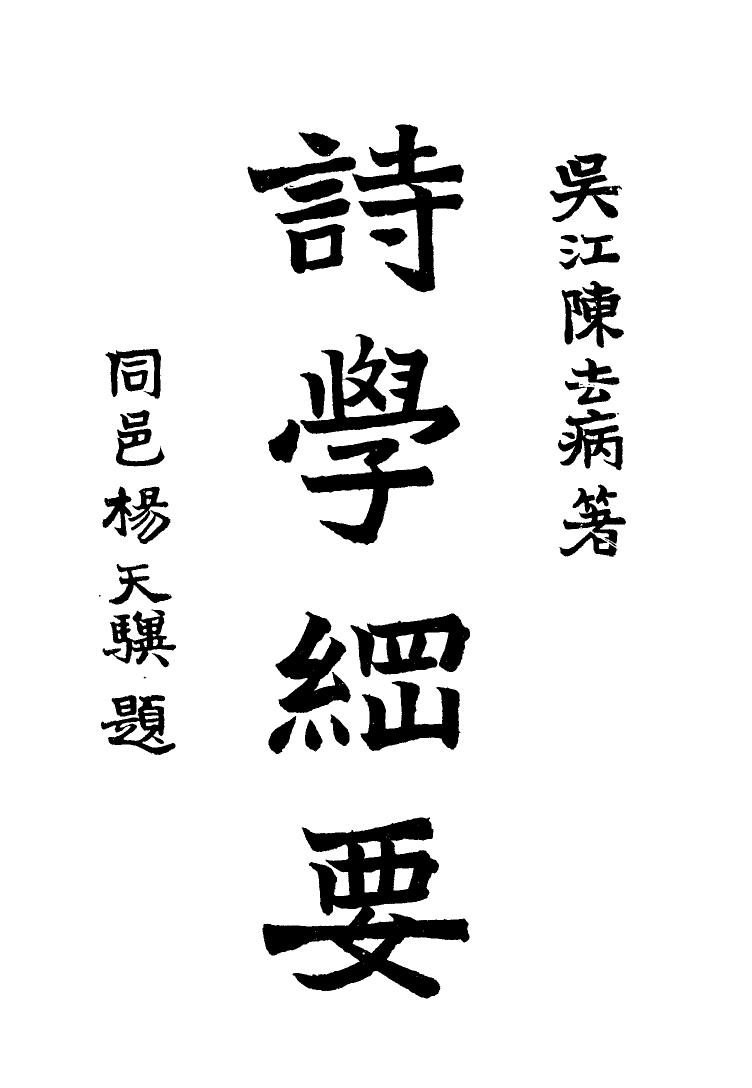 吳江陳去病箸
詩學綱要
同邑楊天驥題